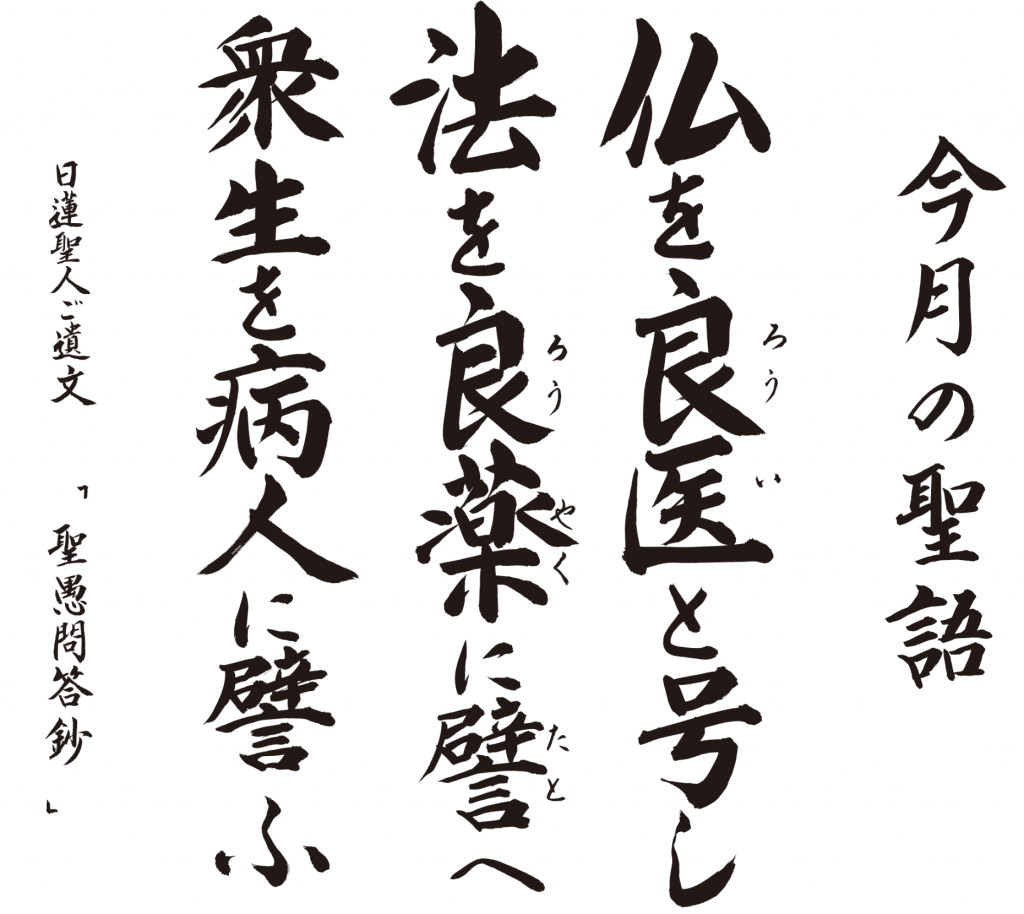 今月の聖語
仏を良医と号し
ろうい
法を良薬に譬へ
ろうやくたと
衆生を病人に譬ふ
日蓮聖人ご遺文「聖愚問答鈔」